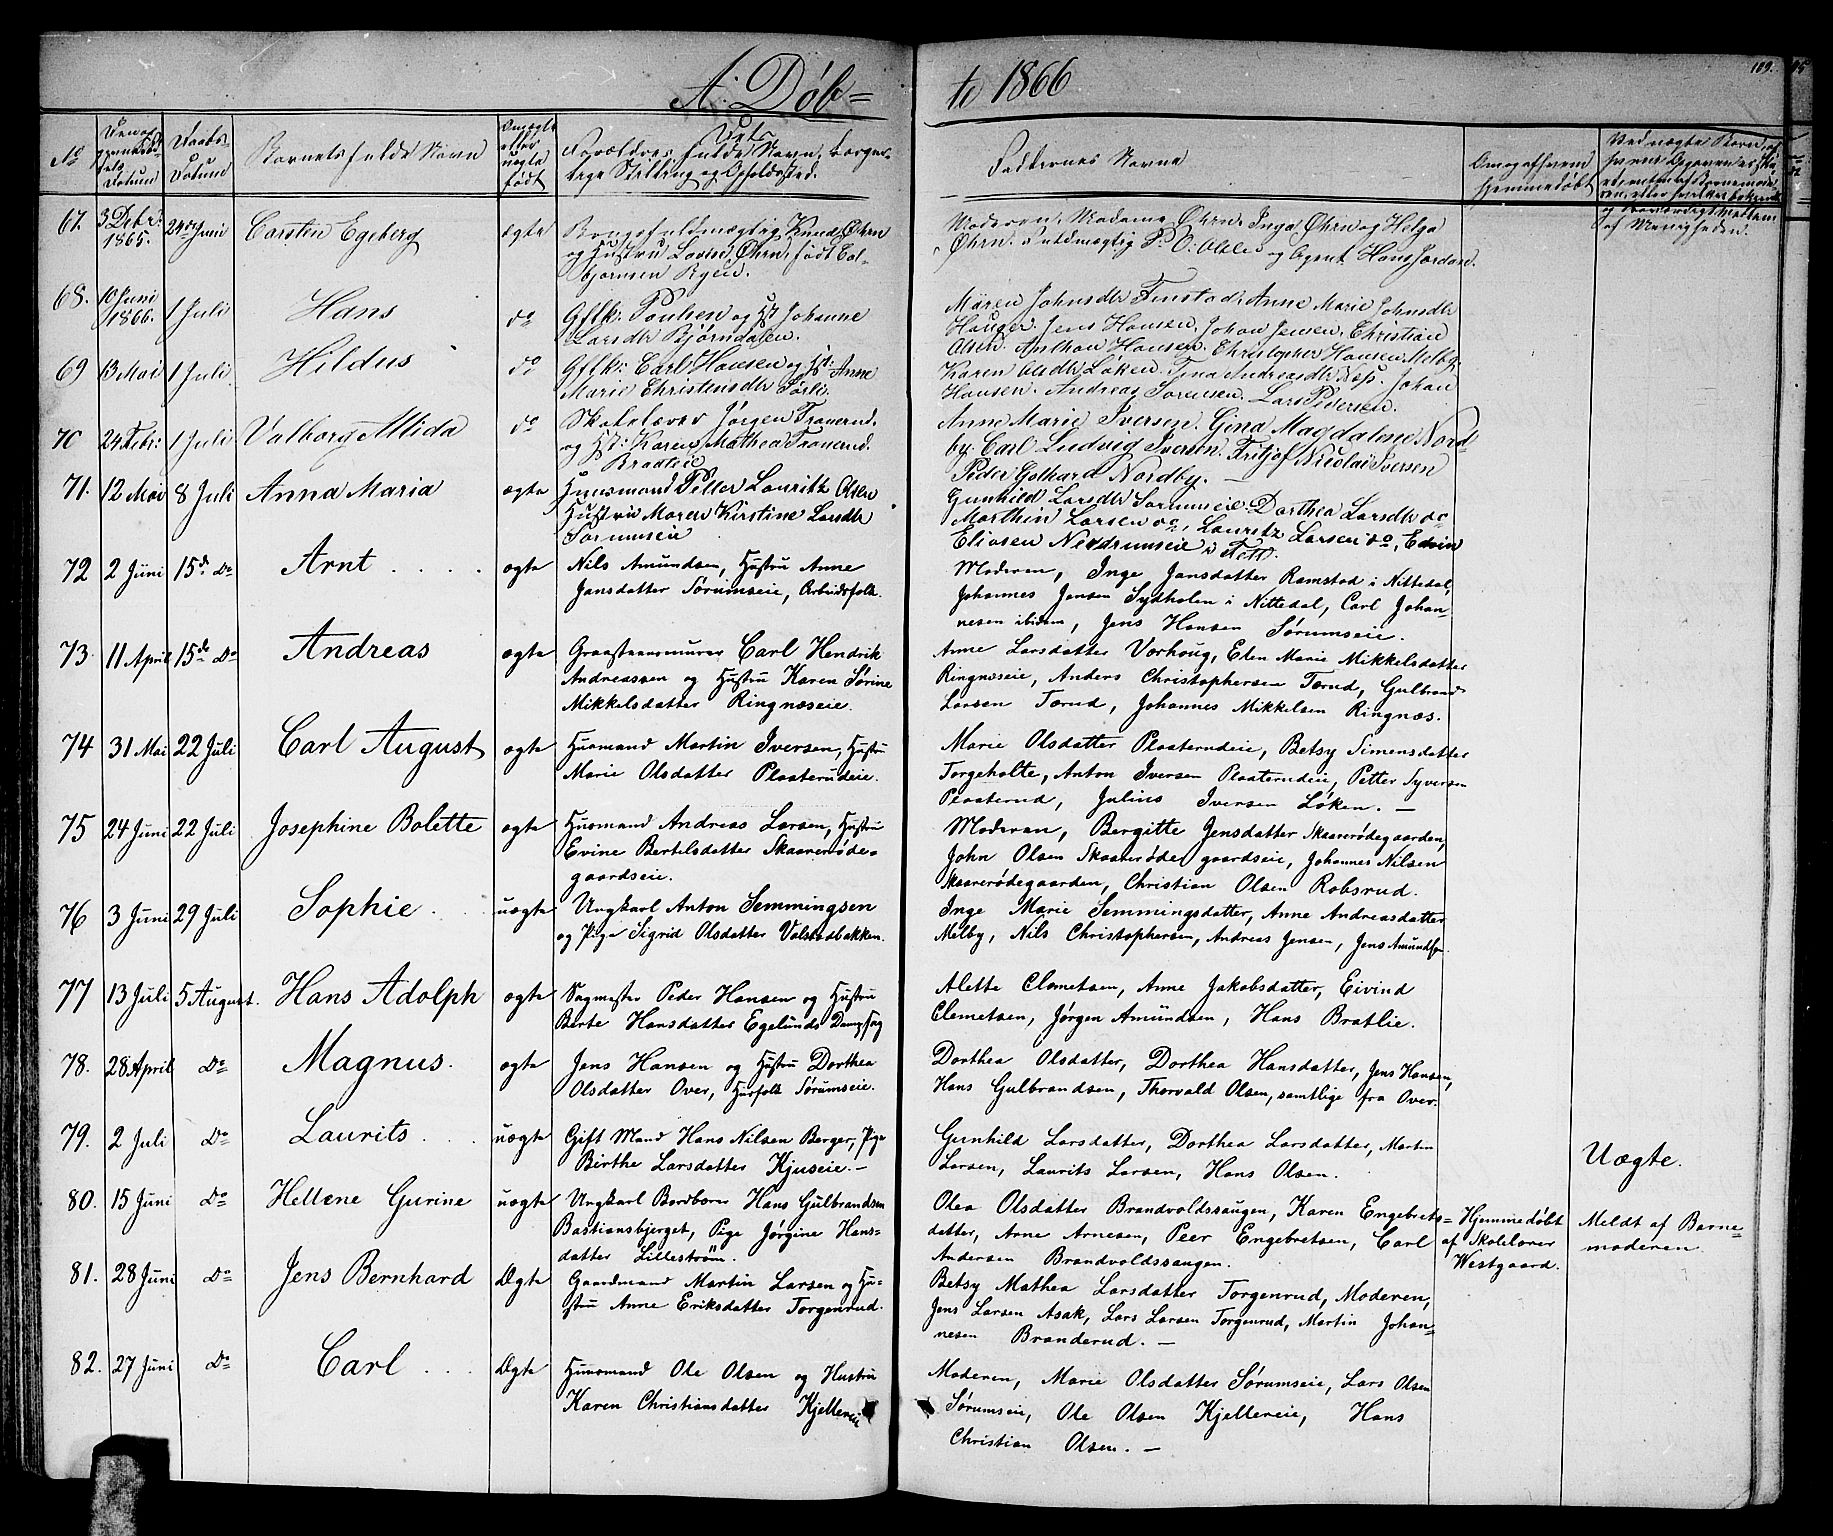 A. Døb=
te 1866
189.
No
Daabs-
Datum
Barnets fulde Navn
Om ægte
eller
uægte
født
Forældres fulde Navn, borger-
lige Stilling og Opholdssted.
Faddernes Navne
Om og af hvem
hjemmedøbt
67. 3 Debr: 1865. 24de Juni Carsten Egeberg ægte
Knud Øhrn
og Hustru Lovise Øhrn, født Tol-
Moderen, Madame Øhrn, Inga Øhrn og Helga
Øhrn. Fuldmægtig P. O. Olsen og Agent Hans Jordan.
68. 10 Juni 1866. 1 Juli Hans do
Gftk: Poulsen og Hst Johanne
Larsdtr Bjørndalen.
Maren Johnsdtr Finstad, Anne Marie Johnsdtr
Hauger, Jens Hansen, Johan Jensen, Christian
69 13 Mai 1 Juli Hildus do
Gftk: Carl Hansen og Hst: Anne
Marie Christensdtr Sørli.
Olsen. Anthon Hansen, Christopher Hansen Melby.
Karen Olsdtr Løken. Tina Andreasdtr Næss. Johan
Hansen. Andreas Sørensen. Lars Pedersen.
70 24 Febr: 1 Juli Valborg Alida do
Skolelærer Jørgen Tranerud.
og Hst: Karen Mathea Tranerud.
Braateie
Anne Marie Iversen. Gina Magdalene Nord-
by. Carl Ludvig Iversen, Fritjof Nicolai Iversen
Peder Gothard Nordby. —
71. 12 Mai 8 Juli Anna Maria ægte
Huusmand Petter Lauritz Olsen
Hustru Maren Kirstine Larsdtr
Sørumseie
Gunhild Larsdtr Sørumseie. Dorthea Larsdtr do
Marthin Larsen do, Lauritz Larsen do, Edvin
Eliasen Nerdrumseie i Fett.
72 2 Juni 15de Do Arnt ægte
Nils Amundsen, Hustru Anne
Jansdatter Sørumseie, Arbeidsfolk.
Moderen, Inge Jansdatter Ramstad i Nittedal,
Johannes Jensen Sydholen i Nittedal, Carl Johan-
nesen ibidem, Jens Hansen Sørumseie.
73. 11 April 15de Do Andreas ægte
Graasteensmurer Carl Hendrik
Andreassen og Hustru Karen Sørine
Mikkelsdatter Ringnæseie.
Anne Larsdatter Vorhoug, Elen Marie Mikkelsdatter
Ringnæseie, Anders Christophersen Tærud, Gulbrand
Larsen Tærud, Johannes Mikkelsen Ringnæs.
74 31 Mai 22 Juli Carl August ægte
Husmand Martin Iversen, Hustru
Marie Olsdatter Plaaterudeie.
Marie Olsdatter Plaaterudeie, Betsy Simensdatter
Torgeholte, Anton Iversen Plaaterudeie, Petter Syversen
Plaaterud, Julius Iversen Løken. —
75 24 Juni 22 Juli Josephine Bolette ægte
Husmand Andreas Larsen, Hustru
Evine Bertelsdatter Skaarerøde-
gaardseie.
Moderen, Bergitte Jensdatter Skaarerødegaarden,
John Olsen Skaarerødegaardseie, Johannes Nilsen
Skaarerødegaarden, Christian Olsen Robsrud.
76 3 Juni 29 Juli Sophie uægte
Ungkarl Anton Semmingsen
og Pige Sigrid Olsdatter Valstadbakken.
Inge Marie Semmingsdatter, Anne Andreasdatter
Melby, Nils Christophersen, Andreas Jensen, Jens Amundsen.
77 13 Juli 5 August. Hans Adolph ægte
Sagmester Peder Hansen og Hustru
Berte Hansdatter Egelunds Dampsag
Alette Clemetsen, Anne Jakobsdatter, Eivind
Clemetsen, Jørgen Amundsen, Hans Bratlie.
78. 28 April Do Magnus. ægte
Jens Hansen og Hustru Dorthea
Olsdatter Over, Husfolk Sørumseie.
Dorthea Olsdatter, Dorthea Hansdatter, Jens Hansen,
Hans Gulbrandsen, Thorvald Olsen, samtlige fra Over.
79. 2 Juli Do Laurits uægte
Gift Mand Hans Nilsen Berger, Pige
Birthe Larsdatter Kjuseie. —
Gunhild Larsdatter, Dorthea Larsdatter, Martin
Larsen, Laurits Larsen, Hans Olsen.
Uægte.
80. 15 Juni Do Hellene Gurine uægte
Ungkarl Bordbærer Hans Gulbrandsen
Bastiansbjerget, Pige Jørgine Hans-
datter Lillestrøm.
Olea Olsdatter Brandvoldssaugen, Karen Engebrets-
datter, Arne Arnesen, Peer Engebretsen, Carl
Andersen Brandvoldssaugen.
Hjemmedøbt
af Skolelærer
Westgaard.
Meldt af Barne-
moderen.
81. 28 Juni Do Jens Bernhard Ægte
Gaardmand Martin Larsen og Hu-
stru Anne Eriksdatter Torgenrud.
Betsy Mathea Larsdatter Torgenrud, Moderen,
Jens Larsen Asak, Lars Larsen Torgenrud, Martin Johan-
nesen Branderud. —
82. 27 Juni Do Carl Ægte
Huusmand Ole Olsen og Hustru
Karen Christiansdatter Kjellereie
Moderen, Marie Olsdatter Sørumseie, Lars Olsen
Sørumseie, Ole Olsen Kjellereie, Hans
Christian Olsen. —